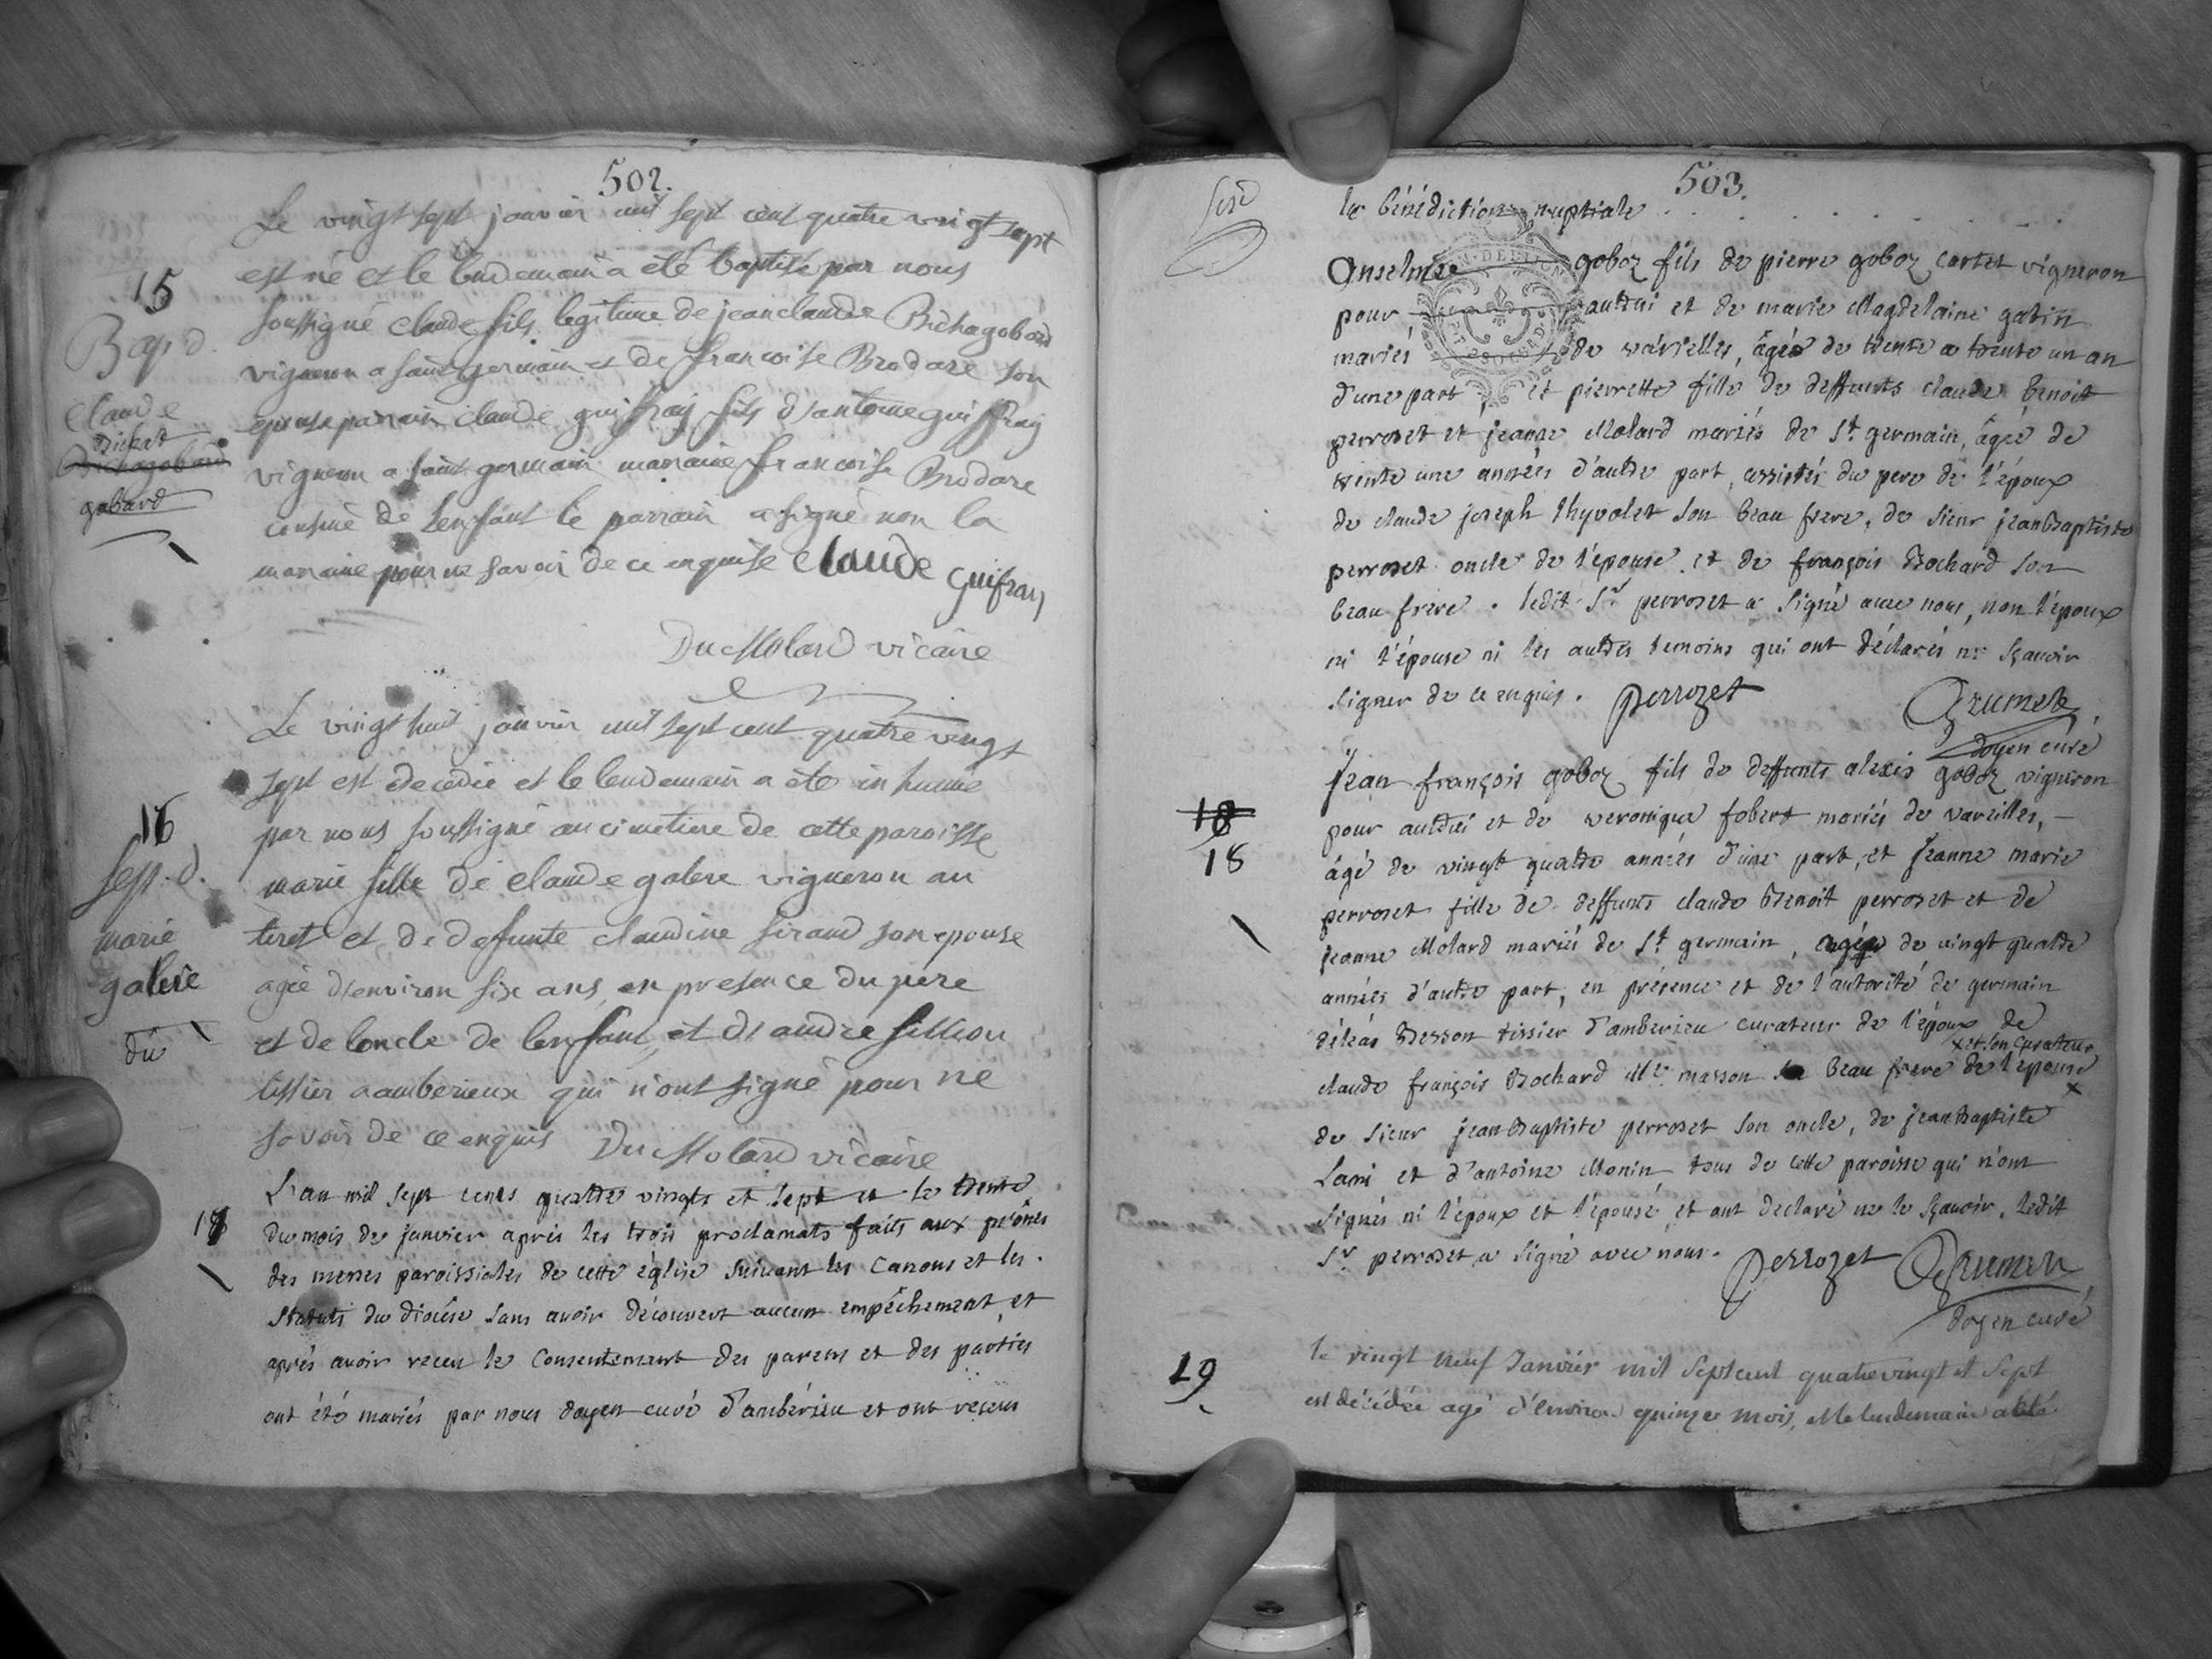 502.
Le vingt sept janvier mil sept cent quatre vingt sept
est né et le lendemain a été baptisé par nous
soussigné claude fils legitime de jean claude Bichagobard
vigneron a saint germain et de francoise Brodare son
epouse parrain claude guifray fils d'antoine guiffray
vigneron a saint germain maraine francoise Brodare
cousine de lenfant le parrain a signé non la
maraine pour ne savoir de ce enquise claude guifray
Du Molard vicaire
15
Bap d.
claude
Bichet
Bichagobard
gobard
Le vingt huit janvier mil sept cent quatre vingt
sept est decedée et le lendemain a été inhumée
par nous soussigné au cimetiere de cette paroisse
marie fille de claude galere vigneron au
tiret et de defunte claudine siraud son epouse
agée d'environ six ans en presence du père
et de loncle de lenfant et d'andre sillion
tissier a amberieux qui n'ont signé pour ne
savoir de ce enquis Du Molard vicaire
16
Sep. d.
marie
galere
du
17
L'an mil sept cents quattre vingts et sept et le trente
du mois de janvier après les trois proclamats faits aux prônes
des messes paroissiales de cette église suivant les canons et les
statuts du diocèse sans avoir découvert aucun empêchement et
après avoir receu le consentement des parens et des parties
ont été mariés par nous doyen curé d'ambérieu et ont receus
503.
la bénédiction nuptiale
Anselme goboz fils de pierre goboz cartet vigneron
pour autrui et de marie Magdelaine gabin
mariés de varielles, âgés de trente a trente un an
d'une part, et pierrette fille de deffunts claude benoit
perrozet et jeanne Molard mariés de St. germain, âgée de
trente une années d'autre part, assistés du pere de l'époux
de claude joseph thyvolet son beau frere, de sieur jean baptiste
perrozet oncle de l'épouse et de françois Bochard son
beau frere. ledit Sr. perrozet a signé avec nous, non l'époux
ni l'épouse ni les autres temoins qui ont déclarés ne sçavoir
signer de ce enquis. perrozet Grumet
doyen curé
18
18
Jean françois goboz fils de deffunts alexis goboz vigneron
pour autrui et de veronique fobert mariés de vareilles,
âgé de vingt quatre années d'une part, et Jeanne marie
perrozet fille de deffunts claude Benoit perrozet et de
jeanne Molard mariés de St. germain, agée de vingt quatre
années d'autre part, en présence et de l'autorité de germain
déléas Besson tissier d'amberieu curateur de l'époux de
x et son curateur
claude françois Bochard Me. masson beau frere de l'épouse x
de sieur jean baptiste perrozet son oncle, de jean baptiste
Lani et d'antoine Monin tous de cette paroisse qui n'ont
signés ni l'époux et l'épouse et ont declaré ne le sçavoir, ledit
Sr. perrozet a signé avec nous. Perrozet Grumet
doyen curé
19
le vingt neuf Janvier mil sept cent quatrevingt et sept
est décédée agé d'environ quinze mois, et le lendemain a été